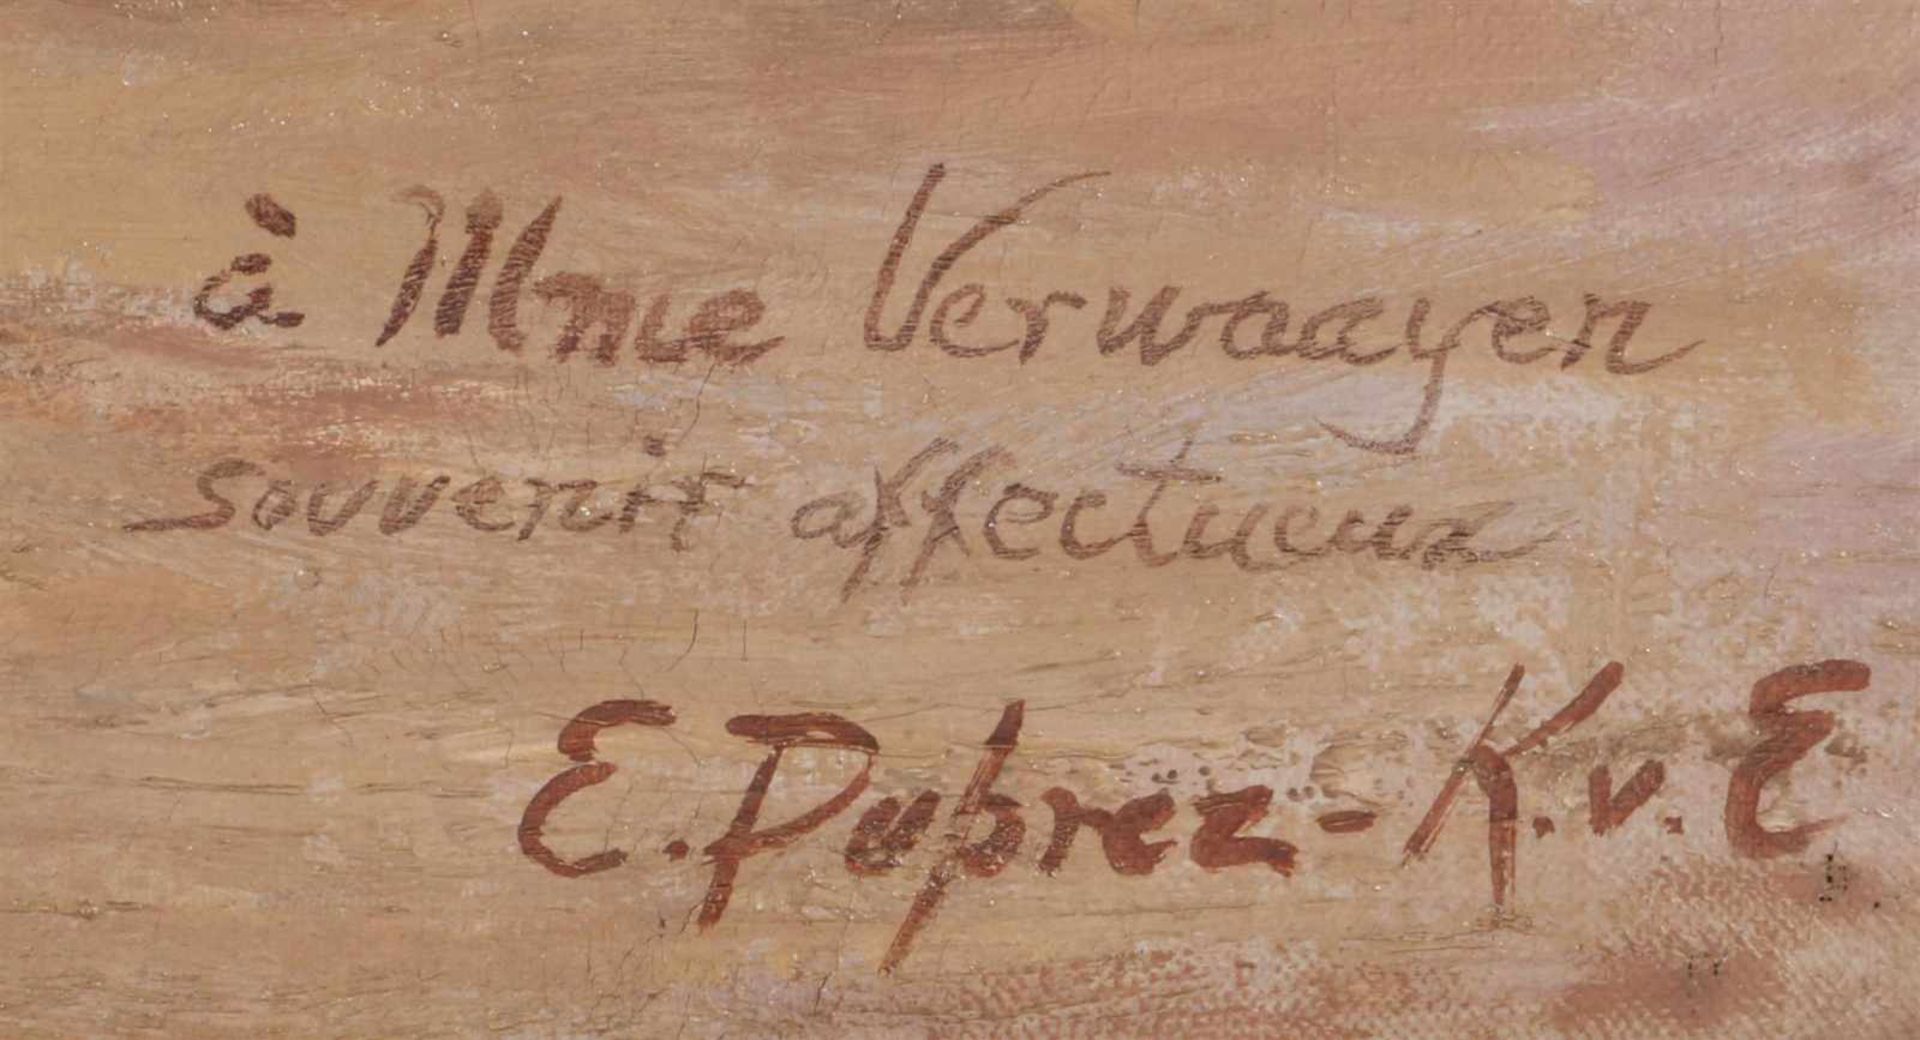 à Mme Verwaayen
souvenir affectueux
E. Duprez-K.v.E